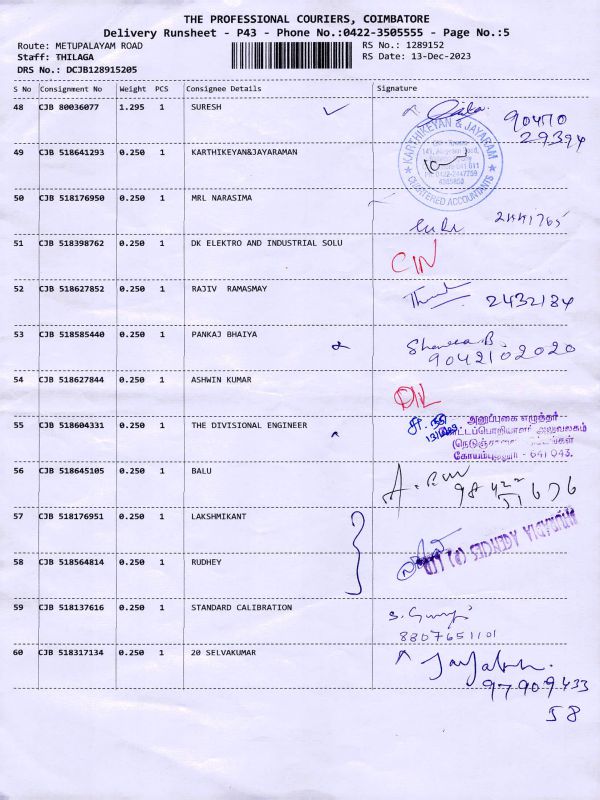 THE PROFESSIONAL COURIERS, COIMBATORE
Delivery Runsheet - P43 - Phone No.:0422-3505555 - Page No.:5
Route: METUPALAYAM ROAD
RS No.: 1289152
Staff: THILAGA
RS Date: 13-Dec-2023
DRS No.: DCJB128915205
S No Consignment No Weight PCS Consignee Details Signature
48 CJB 80036077 1.295 1 SURESH
90470
29394
KARTHIKEYAN & JAYARAM
CHARTERED ACCOUNTANTS
49 CJB 518641293 0.250 1 KARTHIKEYAN&JAYARAMAN
50 CJB 518176950 0.250 1 MRL NARASIMA
2441765
51 CJB 518398762 0.250 1 DK ELEKTRO AND INDUSTRIAL SOLU
52 CJB 518627852 0.250 1 RAJIV RAMASMAY
2432184
53 CJB 518585440 0.250 1 PANKAJ BHAIYA
9042102020
54 CJB 518627844 0.250 1 ASHWIN KUMAR
55 CJB 518604331 0.250 1 THE DIVISIONAL ENGINEER
அனுப்புகை எழுத்தர்
அலுவலகம்
- 641 043.
56 CJB 518645105 0.250 1 BALU
98422
51676
57 CJB 518176951 0.250 1 LAKSHMIKANT
AGENCIES (P) LTD
58 CJB 518564814 0.250 1 RUDHEY
59 CJB 518137616 0.250 1 STANDARD CALIBRATION
8807651101
60 CJB 518317134 0.250 1 20 SELVAKUMAR
97909433
58